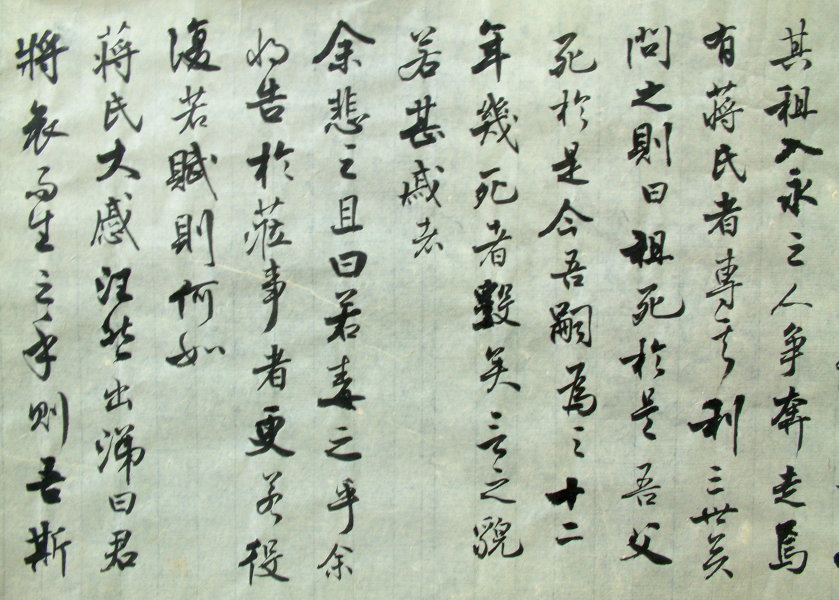 其租入永之人争奔走焉
有蒋氏者專其利三世矣
問之則曰祖死於是吾父
死於是今吾嗣為之十二
年幾死者數矣言之貌
若甚慼者
余悲之且曰若毒之乎余
将告於蒞事者更若役
復若賦則何如
蒋氏大慼汪然出涕曰君
將哀而生之乎則吾斯